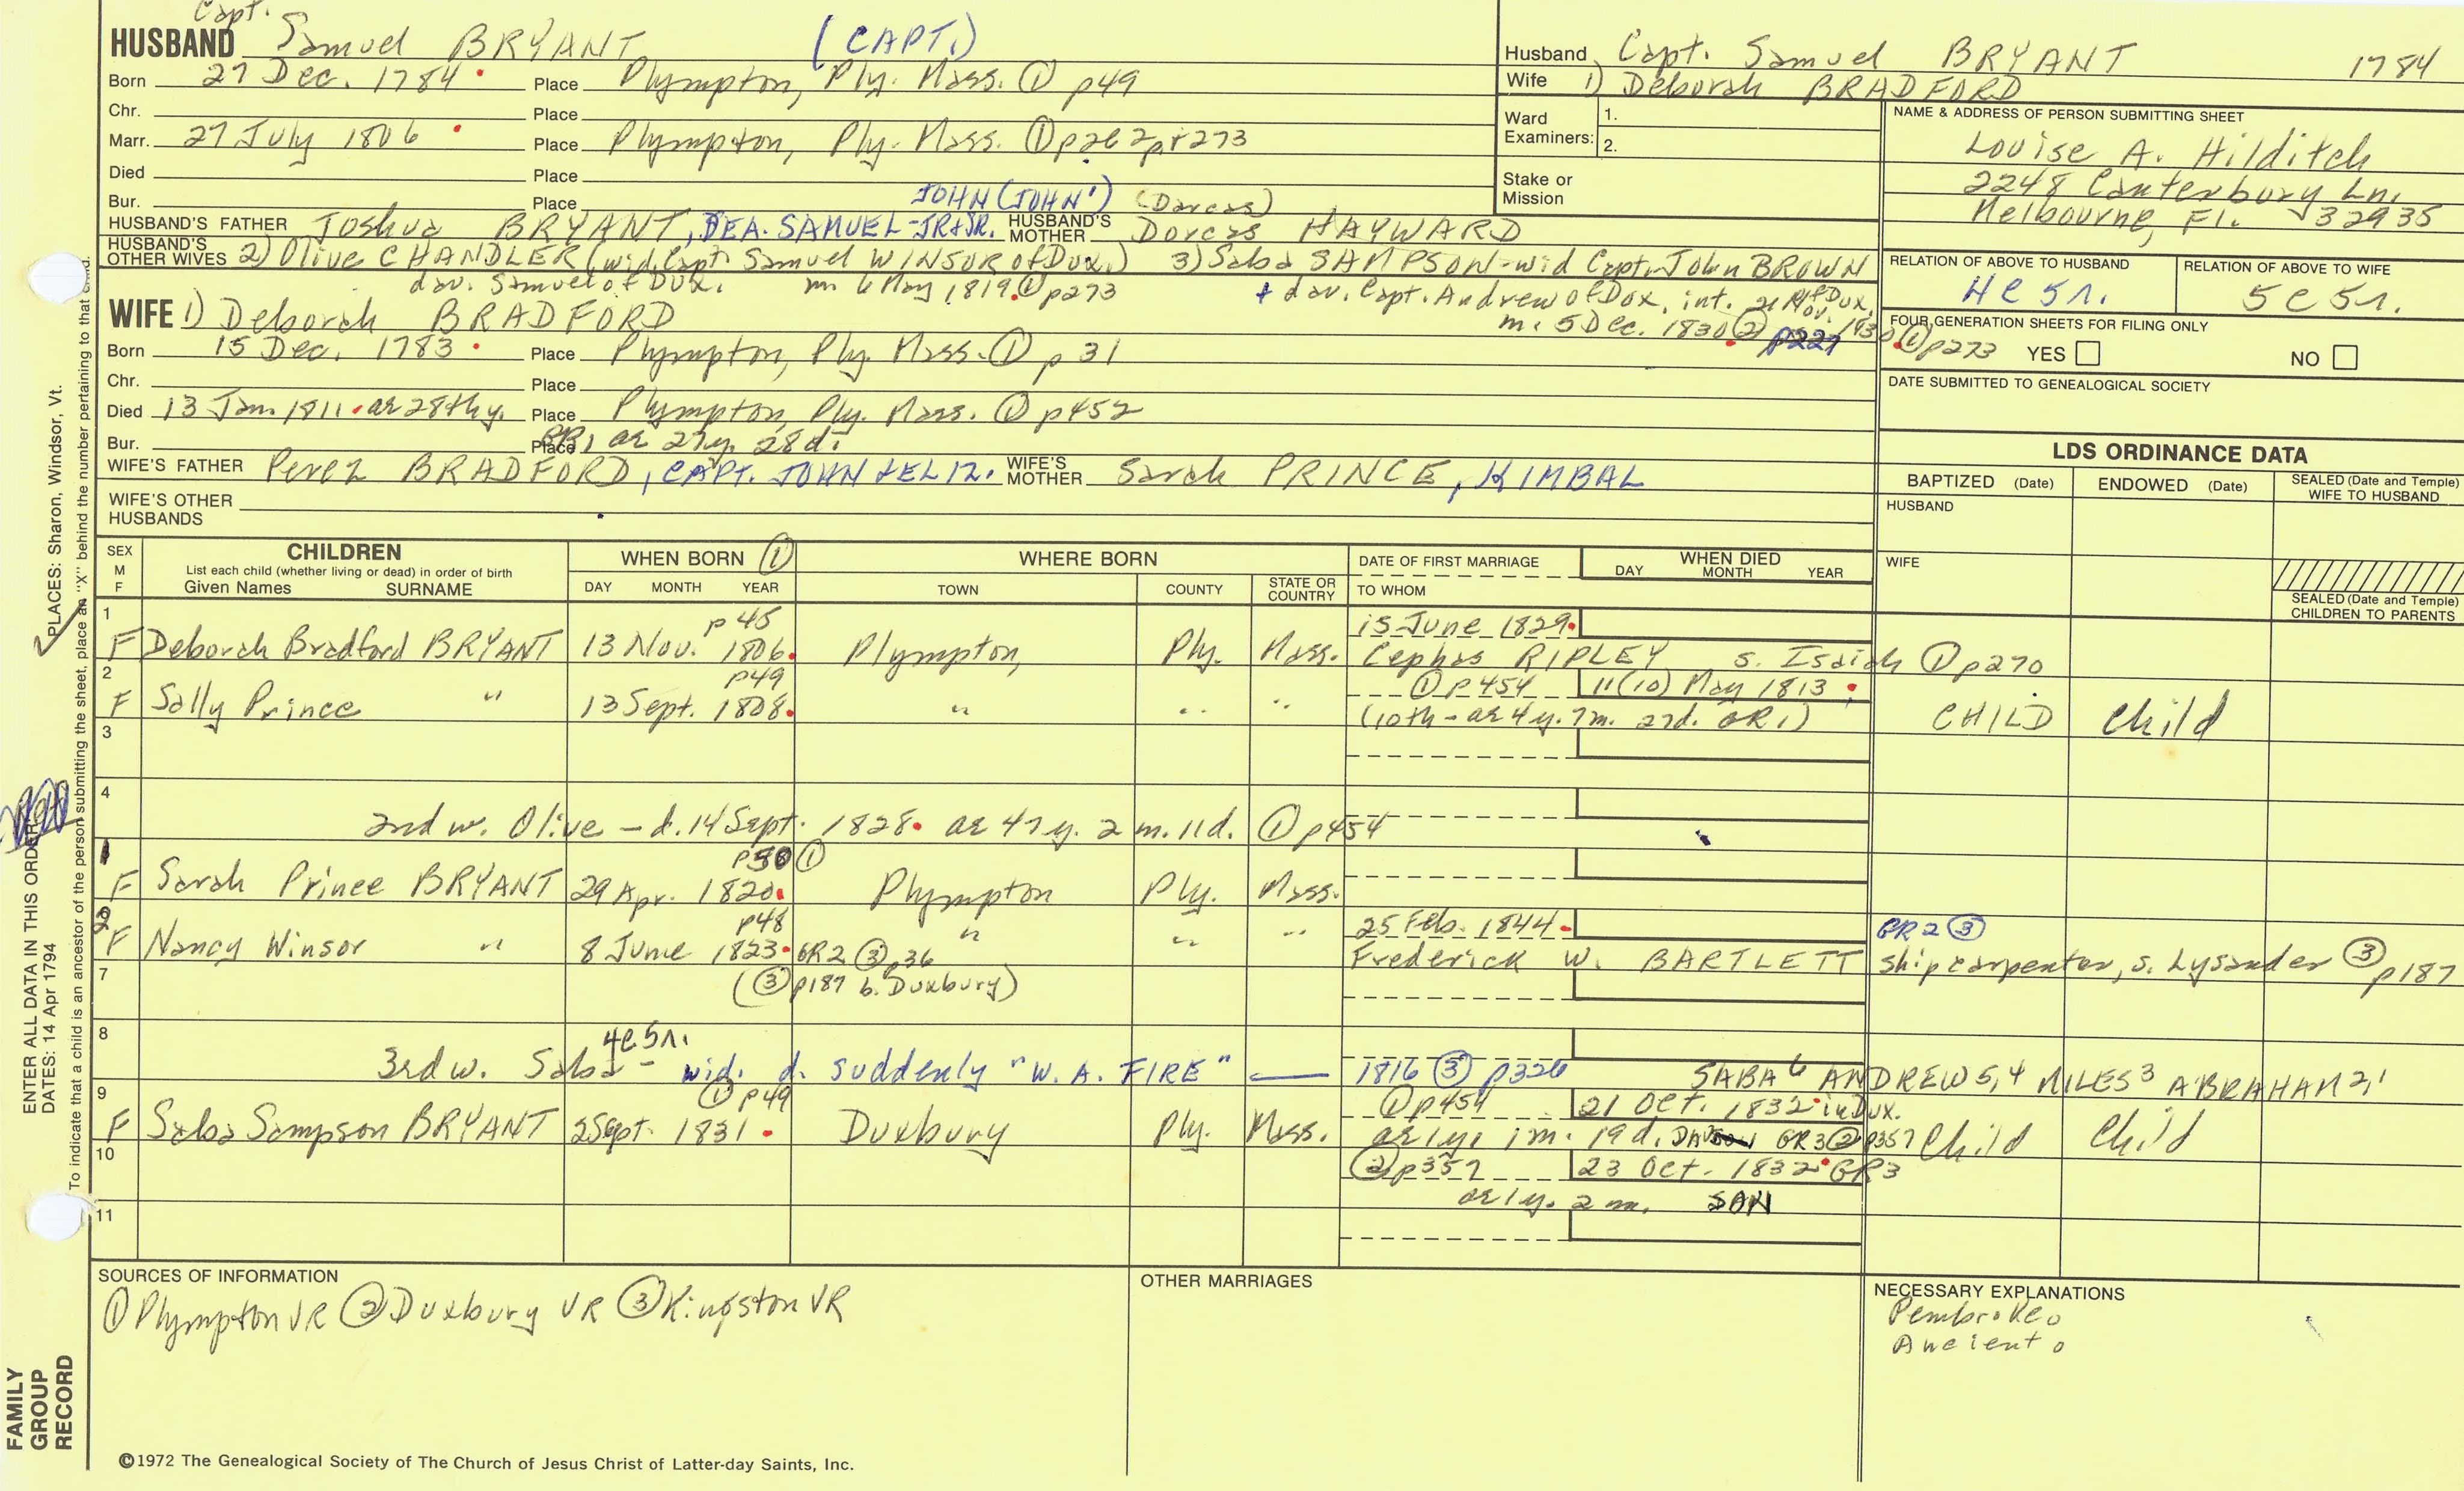 Capt.
HUSBAND Samuel BRYANT (CAPT.)
Born 27 Dec. 1784 Place Plympton, Ply. Mass. ① p49
Chr. Place
Marr. 27 July 1806 Place Plympton, Ply. Mass. ① p262 p+273
Died Place
Bur. Place
JOHN (JOHN') (Darcas)
HUSBAND'S FATHER Joshua BRYANT, DEA. SAMUEL-JR+SR. HUSBAND'S MOTHER Dorcas HAYWARD
HUSBAND'S OTHER WIVES 2) Olive CHANDLER (wid. Capt. Samuel WINSOR of Dux.) 3) Saba SAMPSON - wid Capt. John BROWN
dau. Samuel of Dux. m 6 May 1819. ① p273 + dau. Capt. Andrew of Dux, int. 21 Nov. 1830 ① p273
m. 5 Dec. 1830 ② p227
WIFE 1) Deborah BRADFORD
Born 15 Dec. 1783 Place Plympton, Ply. Mass. ① p31
Chr. Place
Died 13 Jan. 1811. ae 28thy. Place Plympton, Ply. Mass. ① p452
Bur. Place GR1 ae 27y. 28d.
WIFE'S FATHER Perez BRADFORD, CAPT. JOHN WIFE'S MOTHER Sarah PRINCE, KIMBAL
WIFE'S OTHER HUSBANDS
Husband Capt. Samuel BRYANT 1784
Wife 1) Deborah BRADFORD
Ward Examiners: 1.
2.
Stake or Mission
NAME & ADDRESS OF PERSON SUBMITTING SHEET
Louise A. Hilditch
2248 Canterbury Ln.
Melbourne, Fl. 32935
RELATION OF ABOVE TO HUSBAND RELATION OF ABOVE TO WIFE
4C5r. 5C5r.
FOUR GENERATION SHEETS FOR FILING ONLY
YES NO
DATE SUBMITTED TO GENEALOGICAL SOCIETY
LDS ORDINANCE DATA
BAPTIZED (Date) ENDOWED (Date) SEALED (Date and Temple) WIFE TO HUSBAND
HUSBAND
WIFE
SEALED (Date and Temple) CHILDREN TO PARENTS
SEX M F
CHILDREN
List each child (whether living or dead) in order of birth
Given Names SURNAME
WHEN BORN ①
DAY MONTH YEAR
WHERE BORN
TOWN COUNTY STATE OR COUNTRY
DATE OF FIRST MARRIAGE
TO WHOM
WHEN DIED
DAY MONTH YEAR
1 p45 15 June 1829.
F Deborah Bradford BRYANT 13 Nov. 1806. Plympton, Ply. Mass. Cephas RIPLEY s. Isaiah ① p270
2 p49 ① p454 11(10) May 1813.
F Sally Prince " 13 Sept. 1808. " " " (10th - ae 4y. 7m. 27d. GR1) CHILD Child
3
4
2nd w. Olive - d. 14 Sept. 1828. ae 47y. 2m. 11d. ① p454
1 p50 ①
F Sarah Prince BRYANT 29 Apr. 1820. Plympton Ply. Mass.
2 p48 25 Feb. 1844. GR2 ③
F Nancy Winsor " 8 June 1823. GR2 ③ p36 " " " Frederick W. BARTLETT ship carpenter, s. Lysander ③ p187
7 (③ p187 b. Duxbury)
8 4C5r.
3rd w. Saba - wid. d. suddenly "W. A. FIRE" — 1816 ③ p326 SABA6 ANDREW5,4 MILES3 ABRAHAM2,1
9 ① p49 ① p454 21 Oct. 1832 in Dux.
F Saba Sampson BRYANT 2 Sept. 1831. Duxbury Ply. Mass. ae 1y. 1m. 19d. GR3 ② p357 Child Child
10 ② p357 23 Oct. 1832. GR3
ae 1y. 2m. SON
11
SOURCES OF INFORMATION
① Plympton VR ② Duxbury VR ③ Kingston VR
OTHER MARRIAGES
NECESSARY EXPLANATIONS
Pembroke o
Ancient o
©1972 The Genealogical Society of The Church of Jesus Christ of Latter-day Saints, Inc.
FAMILY GROUP RECORD
ENTER ALL DATA IN THIS ORDER:
DATES: 14 Apr 1794
PLACES: Sharon, Windsor, Vt.
To indicate that a child is an ancestor of the person submitting the sheet, place an "X" behind the number pertaining to that child.